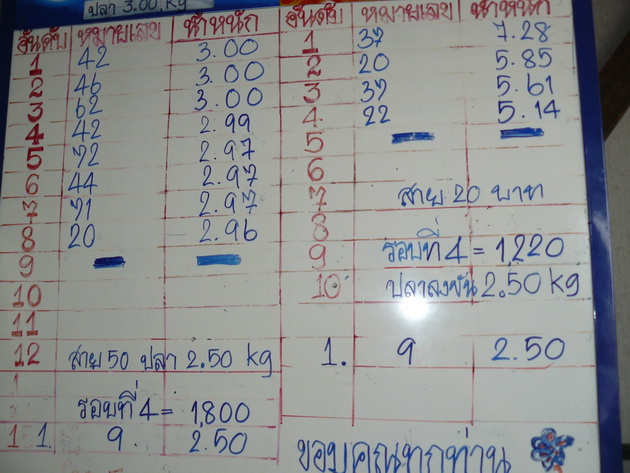 ปลา 3.00 Kg
อันดับ หมายเลข น้ำหนัก
1 42 3.00
2 46 3.00
3 62 3.00
4 42 2.99
5 72 2.97
6 44 2.97
7 71 2.97
8 20 2.96
9
10
11
12 สาย 50 ปลา 2.50 kg
1
รอบที่ 4 = 1,800
1 1. 9. 2.50
อันดับ หมายเลข น้ำหนัก
1 37 7.28
2 20 5.85
3 37 5.61
4 22 5.14
5
6
7 สาย 20 บาท
8
9 รอบที่ 4 = 1,220
10 ปลาลงขัน 2.50 kg
1. 9 2.50
ขอบคุณทุกท่าน